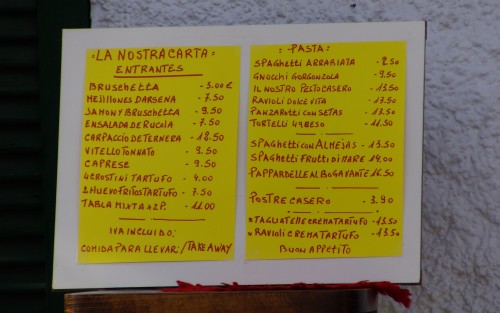 =LA NOSTRA CARTA=
ENTRANTES
BRUSCHETTA - 5.00 €
MEJILLONES DARSENA - 7.50
JAMON Y BRUSCHETTA - 9.50
ENSALADA DE RUCOLA - 7.50
CARPACCIO DE TERNERA - 12.50
VITELLO TONNATO - 9.50
CAPRESE - 9.50
4 CROSTINI TARTUFO - 4.00
2 HUEVO FRITOS TARTUFO - 7.50
TABLA MIXTA x 2P. - 11.00
IVA INCLUIDO:
COMIDA PARA LLEVAR:/TAKE AWAY
: PASTA:
SPAGHETTI ARRABIATA - 8.50
GNOCCHI GORGONZOLA - 9.50
IL NOSTRO PESTO CASERO - 13.50
RAVIOLI DOLCE VITA - 13.50
PANZAROTTI CON SETAS - 13.50
TORTELLI - 11.50
SPAGHETTI CON ALMEJAS - 13.50
SPAGHETTI FRUTTI DI MARE 14.00
PAPPARDELLE AL BOGAVANTE 16.50
POSTRE CASERO - 3.90
*TAGLIATELLE CREMA TARTUFO - 13.50
*RAVIOLI CREMA TARTUFO - 13.50
BUON APPETITO